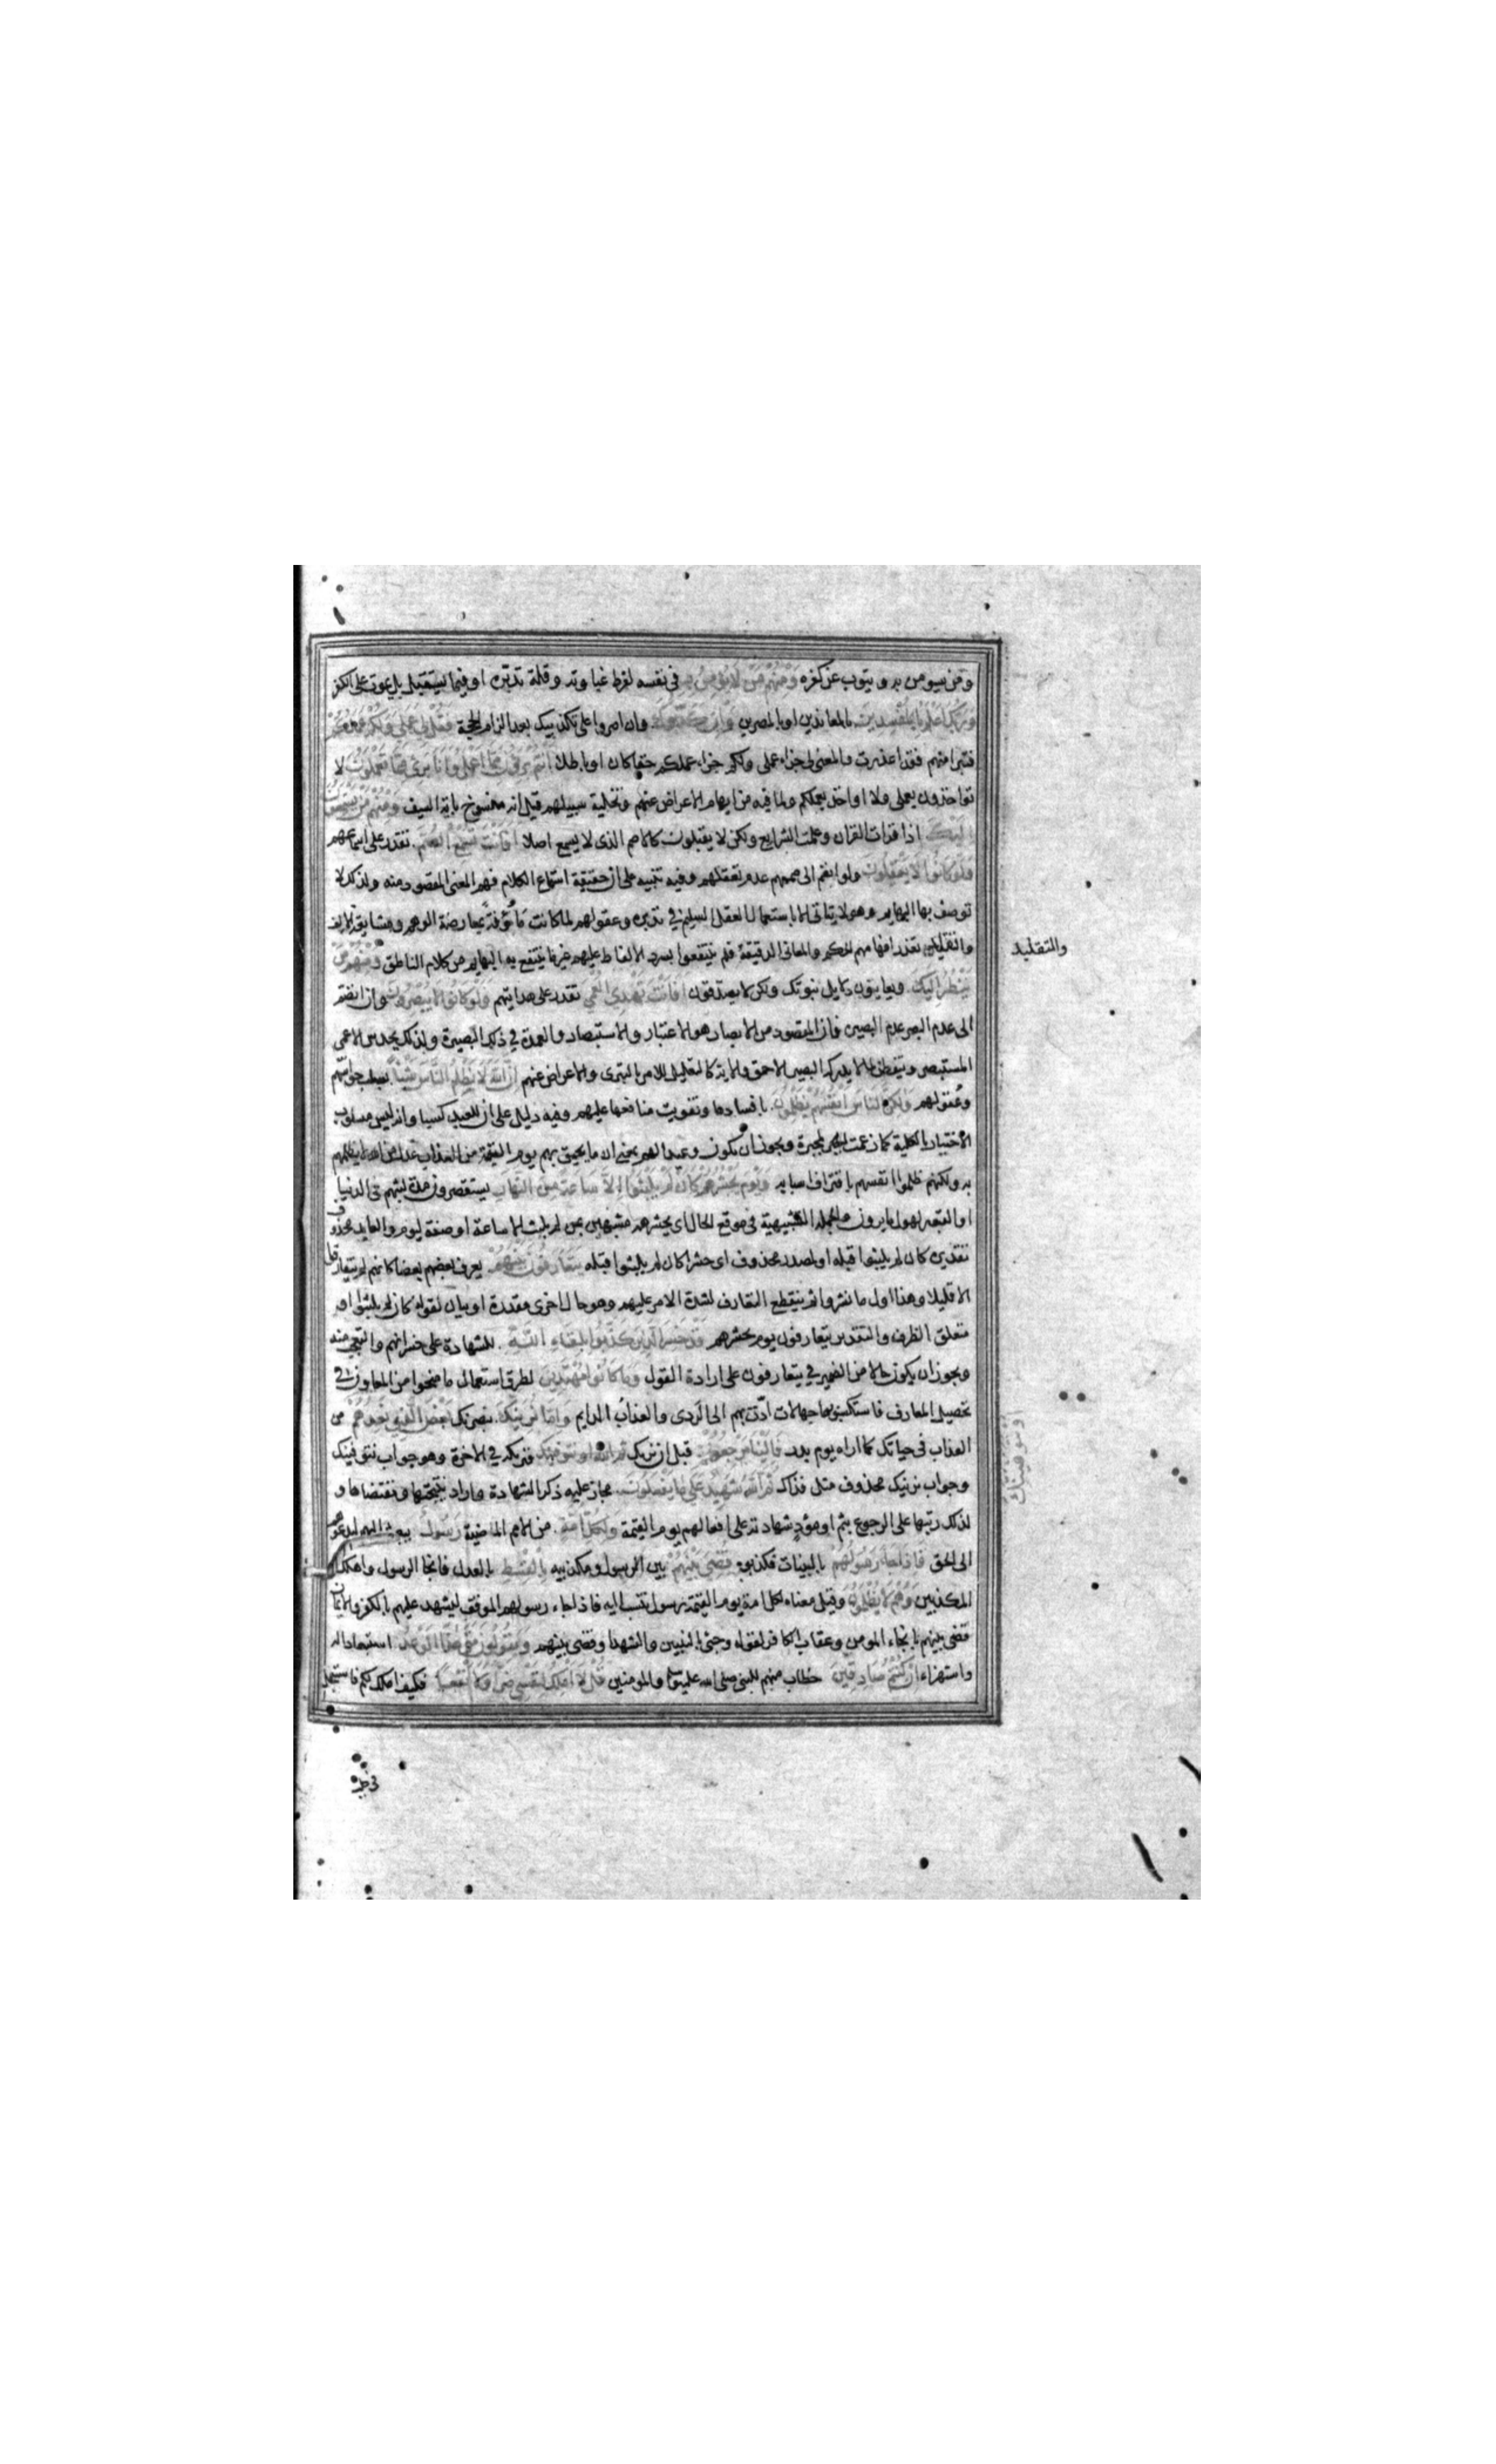 ومن سيومن به ويتوب عن كفره ومنهم من لا يؤمن به في نفسه لفرط غباوته وقلة تدبره او فيما يستقبل بل يموت على الكفر
وربك اعلم بالمفسدين بالمعاندين او بالمصرين وان كذبوك وان اصروا على تكذيبك بعد الزام الحجة فقل لي عملي ولكم عملكم
فتبرا منهم فقد اعذرت والمعنى لي جزاء عملي ولكم جزاء عملكم حقا كان او باطلا انتم بريئون مما اعمل وانا بريء مما تعملون لا
تواخذون بعملي ولا اواخذ بعملكم ولما فيه من ايهام الاعراض عنهم وتخلية سبيلهم قيل انه منسوخ باية السيف ومنهم من يستمعون
اليك اذا قرات القران وعلمت الشرايع ولكن لا يقبلون كالاصم الذي لا يسمع اصلا افانت تسمع الصم تقدر على اسماعهم
ولو كانوا لا يعقلون ولو انضم الى صممهم عدم تعقلهم وفيه تنبيه على ان حقيقة استماع الكلام فهم المعنى المقصود منه ولذلك لا
توصف بها البهايم وهو لا يتاتى الا باستعمال العقل السليم في تدبره وعقولهم لما كانت مأوفة بمعارضة الوهم ومشايعة الالف
والتقليد تعذر افهامهم الحكم والمعاني الدقيقة فلم ينتفعوا بسرد الالفاظ عليهم غير ما ينتفع به البهايم من كلام الناطق ومنهم من
والتقليد
ينظر اليك ويعاينون دلايل نبوتك ولكن لا يصدقون افانت تهدي العمي تقدر على هدايتهم ولو كانوا لا يبصرون وان انضم
الى عدم البصر عدم البصيرة فان المقصود من الابصار هو الاعتبار والاستبصار والعمدة في ذلك البصيرة ولذلك يحدس الاعمى
المستبصر ويتفطن لما لا يدركه البصير الاحمق والاية كالتعليل للامر بالتبري والاعراض عنهم ان الله لا يظلم الناس شيئا بسلب حواسهم
وعقولهم ولكن الناس انفسهم يظلمون بافسادها وتفويت منافعها عليهم وفيه دليل على ان للعبد كسبا وانه ليس مسلوب
الاختيار بالكلية كما زعمت المجبرة ويجوز ان يكون وعيدا لهم بمعنى ان ما يحيق بهم يوم القيمة من العذاب عدل من الله لا يظلمهم
به ولكنهم ظلموا انفسهم باقتراف اسبابه ويوم يحشرهم كان لم يلبثوا الا ساعة من النهار يستقصرون مدة لبثهم في الدنيا
او القبور لهول ما يرون والجملة التشبيهية في موقع الحال اي يحشرهم مشبهين بمن لم يلبث الا ساعة او صفة ليوم والعايد محذوف
تقديره كان لم يلبثوا قبله او لمصدر محذوف اي حشرا كان لم يلبثوا قبله يتعارفون بينهم يعرف بعضهم بعضا كانهم لم يتفارقوا
الا قليلا وهذا اول ما نشروا ثم ينقطع التعارف لشدة الامر عليهم وهو حال اخرى مقدرة او بيان لقوله كان لم يلبثوا او
متعلق الظرف والتقدير يتعارفون يوم يحشرهم قد خسر الذين كذبوا بلقاء الله للشهادة على خسرانهم والتعجب منه
ويجوز ان يكون حالا من الضمير في يتعارفون على ارادة القول وما كانوا مهتدين لطرق استعمال ما منحوا من المعاون في
تحصيل المعارف فاستكسبوا بها جهالات ادّت بهم الى الردى والعذاب الدايم واما نرينك نبصرنك بعض الذي نعدهم من
العذاب في حياتك كما اراه يوم بدر فالينا مرجعهم قبل ان نريك او نتوفينك فنريكه في الاخرة وهو جواب نتوفينك
او نتوفينك
وجواب نرينك محذوف مثل فذاك ثم الله شهيد على ما يفعلون مجاز عليه ذكر الشهادة واراد نتيجتها ومقتضاها و
لذلك رتبها على الرجوع بثم او مؤد شهادته على افعالهم يوم القيمة ولكل امة من الامم الماضية رسول يبعث اليهم ليدعوهم
الى الحق فاذا جاء رسولهم بالبينات فكذبوه قضي بينهم بين الرسول ومكذبيه بالقسط بالعدل فانجا الرسول واهلك
المكذبين وهم لا يظلمون وقيل معناه لكل امة يوم القيمة رسول تنسب اليه فاذا جاء رسولهم الموقف ليشهد عليهم بالكفر والايمان
قضى بينهم بانجاء المومن وعقاب الكافر لقوله وجئ بالنبيين والشهدا وقضى بينهم ويقولون متى هذا الوعد استبعادا له
واستهزاء ان كنتم صادقين خطاب منهم للنبي صلى الله عليه وسلم والمومنين قل لا املك لنفسي ضرا ولا نفعا فكيف املك لكم فاستعجل